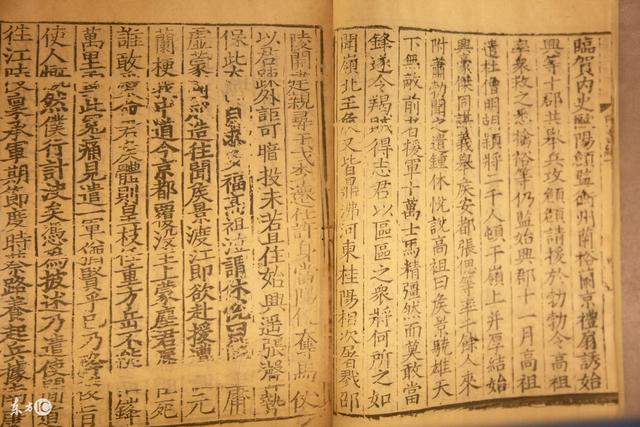 臨賀內史歐陽頠監衡州蘭裕蘭京禮扇誘始
興等十郡共舉兵攻頠頠請援於勃勃令高祖
率衆救之悉擒裕等仍監始興郡十一月高祖
遣杜僧明胡穎將二千人頓于嶺上并厚結始
興豪傑同謀義舉侯安都張偲等率千餘人來
附蕭勃聞之遣鍾休悅說高祖曰侯景驍雄天
下無敵前者援軍十萬士馬精彊然而莫敢當
鋒遂令羯賊得志君以區區之衆將何所之如
聞嶺北王侯又皆鼎沸河東桂陽相次屠戮邵
陵開建親尋干戈李遷仕許身當陽便奪馬仗
以君疎外詎可暗投未若且住始興遙張聲勢
保此太 自求多福高祖泣謂休悅曰 庸
虛蒙國 造往聞侯景渡江即欲赴援遭 元
蘭梗我中道今京都覆沒主上蒙塵君辱 死
誰敢愛命君侯體則皇枝任重方岳不能 鋒
萬里雪此冤痛見遣一軍猶賢乎已乃 後旨
使人慨然僕行計決矣憑爲披述乃遣使間道
往江陵稟承軍期節度時蔡路養起兵據南